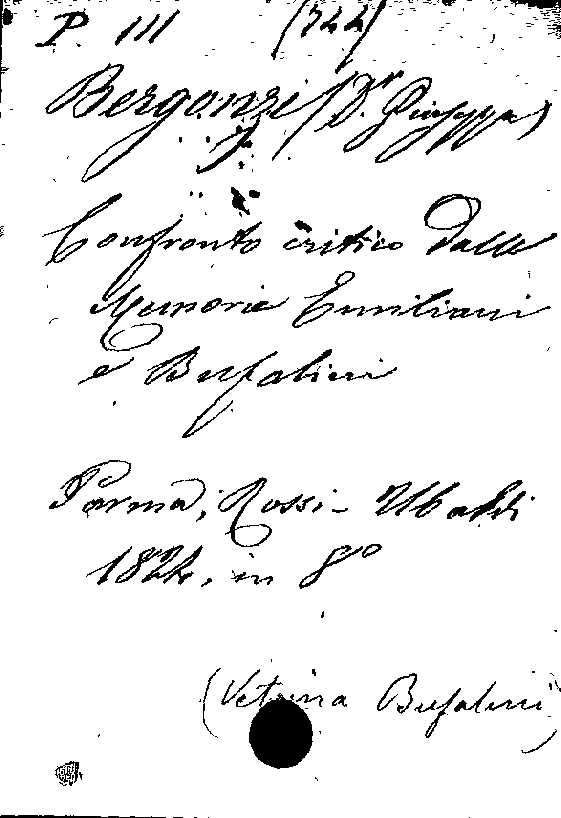 P. III (744)
Bergonzi (Dr. Giuseppe)
Confronto critico dalle
Memorie Emiliani
e Bufalini
Parma, Rossi-Ubaldi
1824, in 8°
(Vetrina Bufalini)